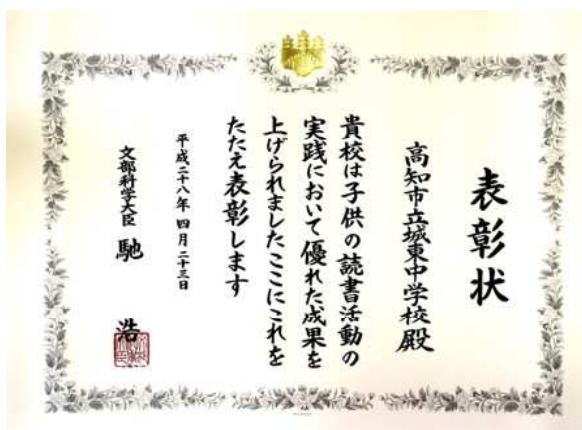 表彰状
高知市立城東中学校殿
貴校は子供の読書活動の
実践において優れた成果を
上げられましたここにこれを
たたえ表彰します
平成二十八年四月二十三日
文部科学大臣 馳 浩